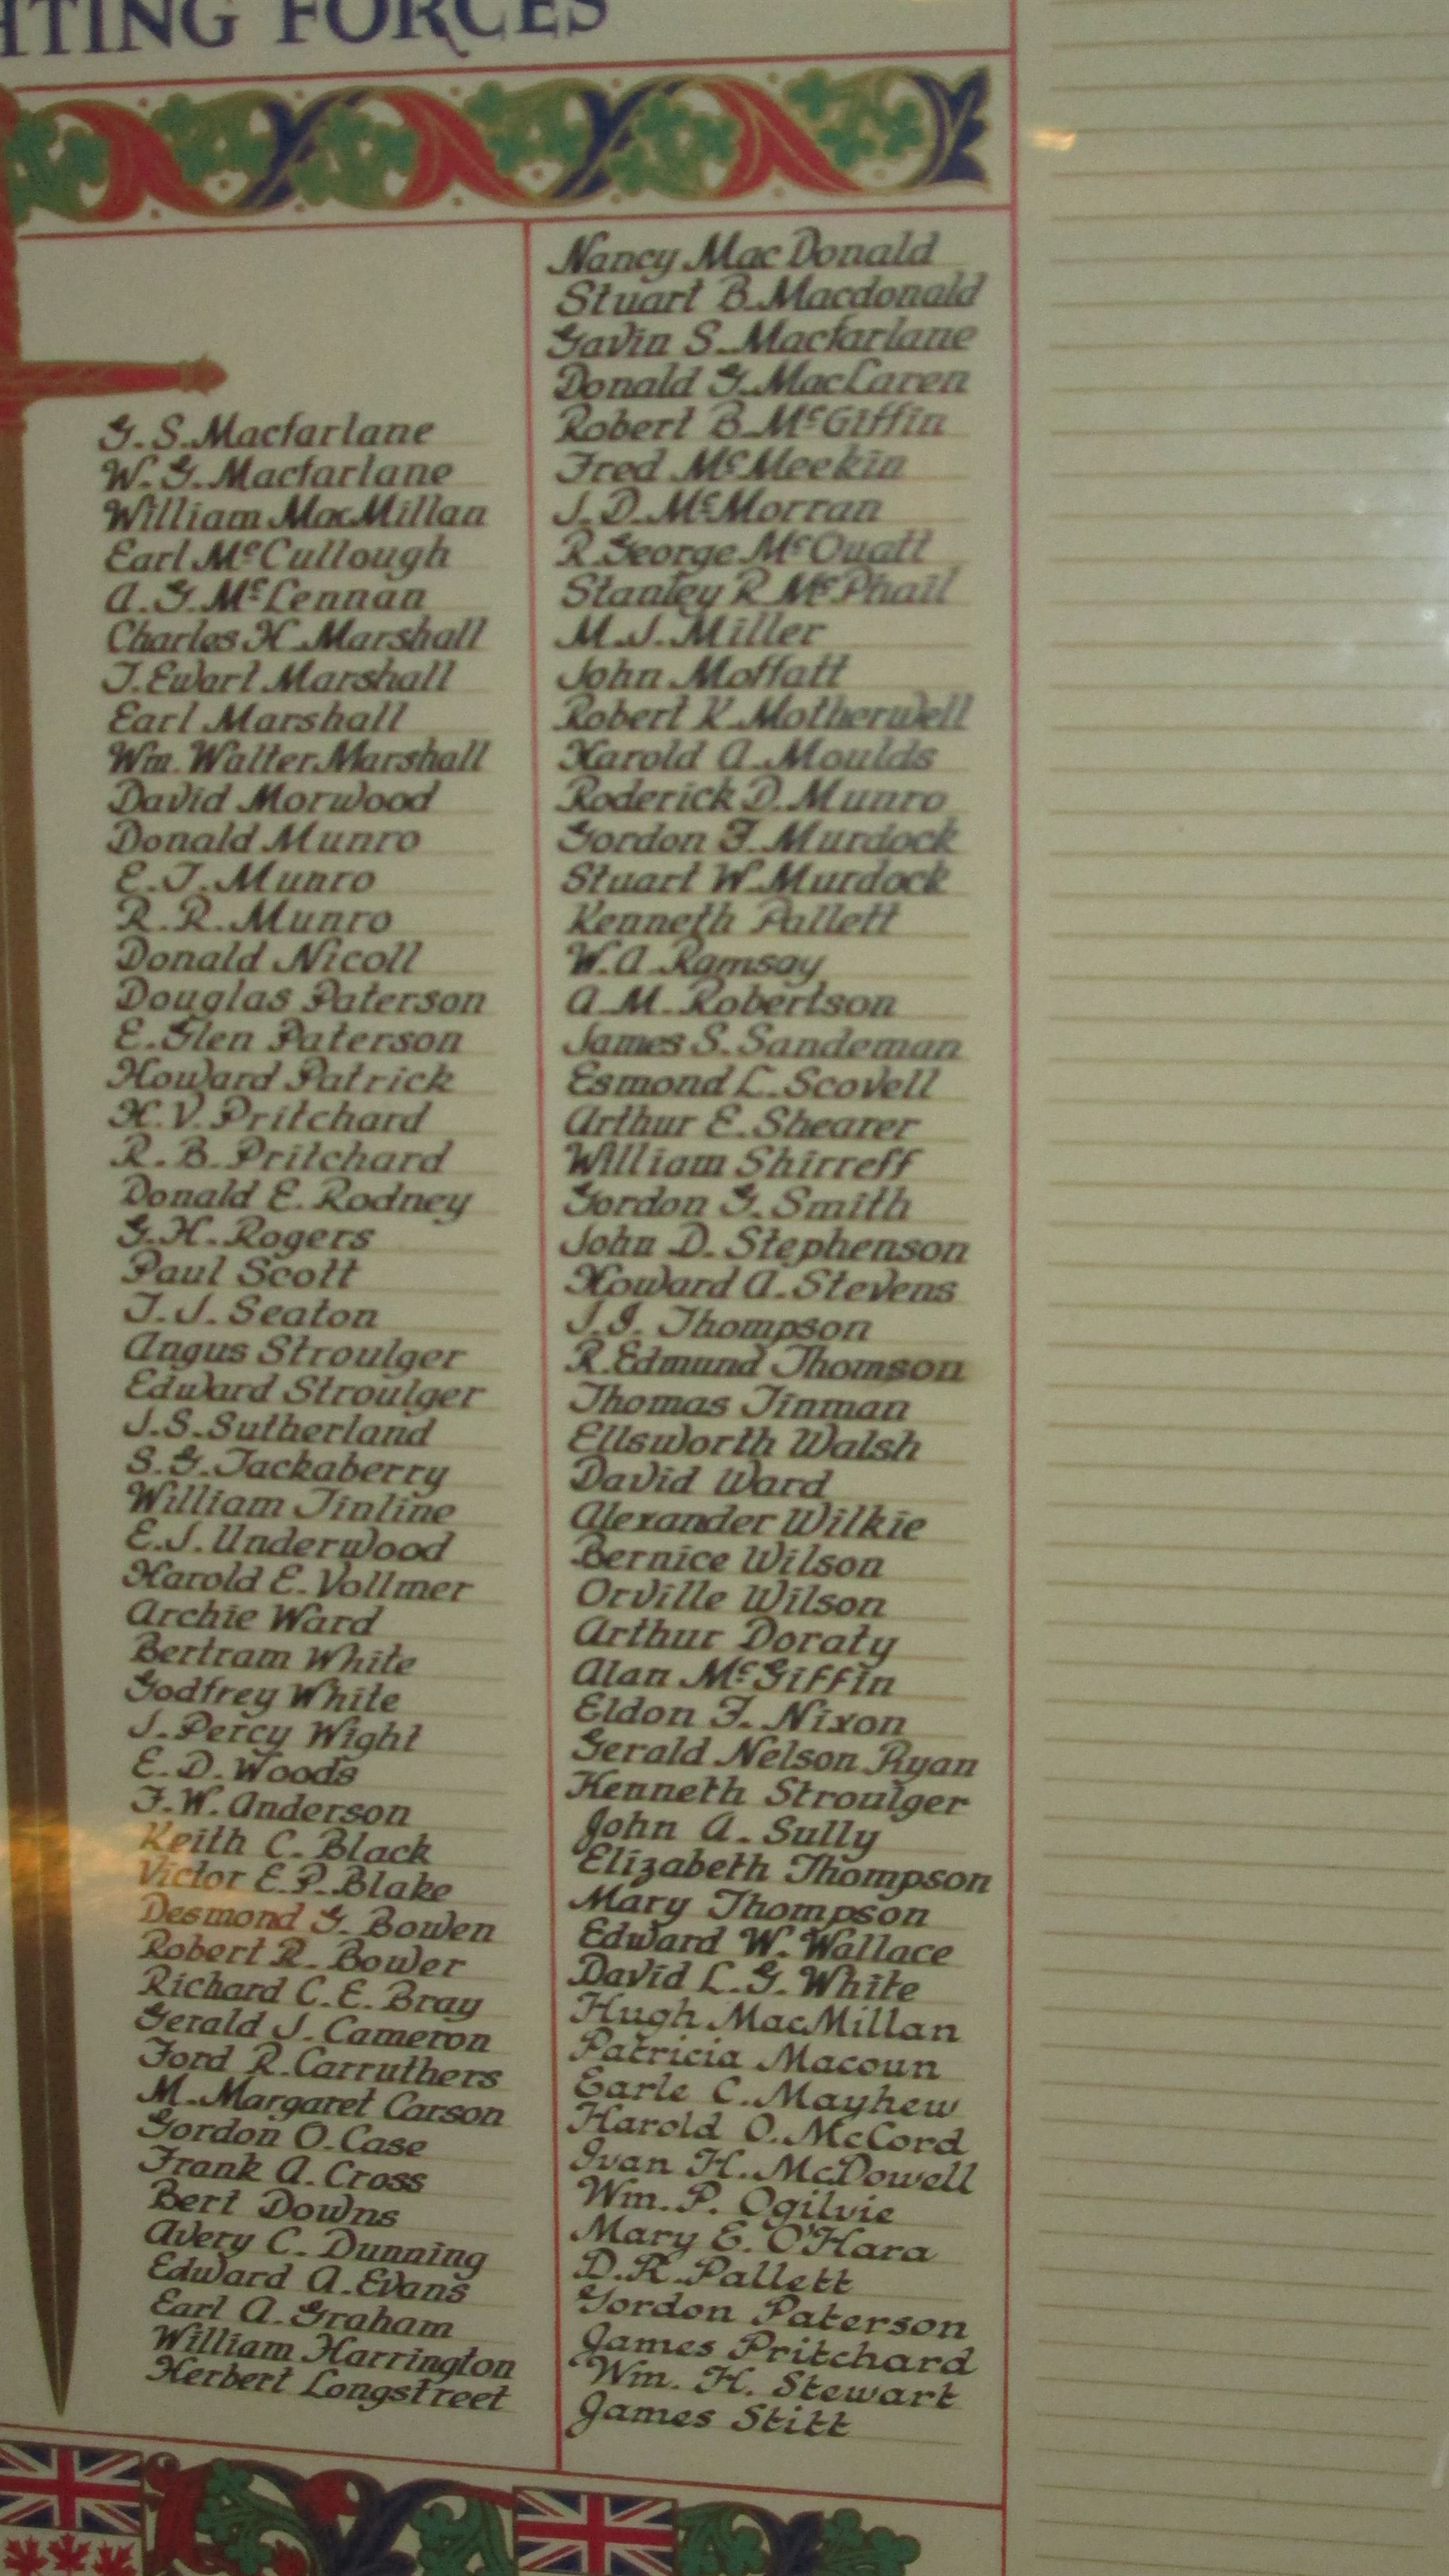 HTING FORCES
G. S. Macfarlane
W. G. Macfarlane
William MacMillan
Earl McCullough
A. G. McLennan
Charles H. Marshall
T. Ewart Marshall
Earl Marshall
Wm. Walter Marshall
David Morwood
Donald Munro
E. T. Munro
R. R. Munro
Donald Nicoll
Douglas Paterson
E. Glen Paterson
Howard Patrick
H. V. Pritchard
R. B. Pritchard
Donald E. Rodney
G. H. Rogers
Paul Scott
T. J. Seaton
Angus Stroulger
Edward Stroulger
J. S. Sutherland
S. G. Tackaberry
William Tinline
E. J. Underwood
Harold E. Vollmer
Archie Ward
Bertram White
Godfrey White
J. Percy Wight
E. D. Woods
F. W. Anderson
Keith C. Black
Victor E. P. Blake
Desmond G. Bowen
Robert R. Bower
Richard C. E. Bray
Gerald J. Cameron
Ford R. Carruthers
M. Margaret Carson
Gordon O. Case
Frank A. Cross
Bert Downs
Avery C. Dunning
Edward A. Evans
Earl A. Graham
William Harrington
Herbert Longstreet
Nancy MacDonald
Stuart B. Macdonald
Gavin S. Macfarlane
Donald G. MacLaren
Robert B. McGiffin
Fred McMeekin
J. D. McMorran
R. George McQuatt
Stanley R. McPhail
M. J. Miller
John Moffatt
Robert K. Motherwell
Harold A. Moulds
Roderick D. Munro
Gordon F. Murdock
Stuart W. Murdock
Kenneth Pallett
W. A. Ramsay
A. M. Robertson
James S. Sandeman
Esmond L. Scovell
Arthur E. Shearer
William Shirreff
Gordon G. Smith
John D. Stephenson
Howard A. Stevens
J. I. Thompson
R. Edmund Thomson
Thomas Tinman
Ellsworth Walsh
David Ward
Alexander Wilkie
Bernice Wilson
Orville Wilson
Arthur Doraty
Alan McGiffin
Eldon F. Nixon
Gerald Nelson Ryan
Kenneth Stroulger
John A. Sully
Elizabeth Thompson
Mary Thompson
Edward W. Wallace
David L. G. White
Hugh MacMillan
Patricia Macoun
Earle C. Mayhew
Harold O. McCord
Ivan H. McDowell
Wm. P. Ogilvie
Mary E. O'Hara
D. R. Pallett
Gordon Paterson
James Pritchard
Wm. H. Stewart
James Stitt